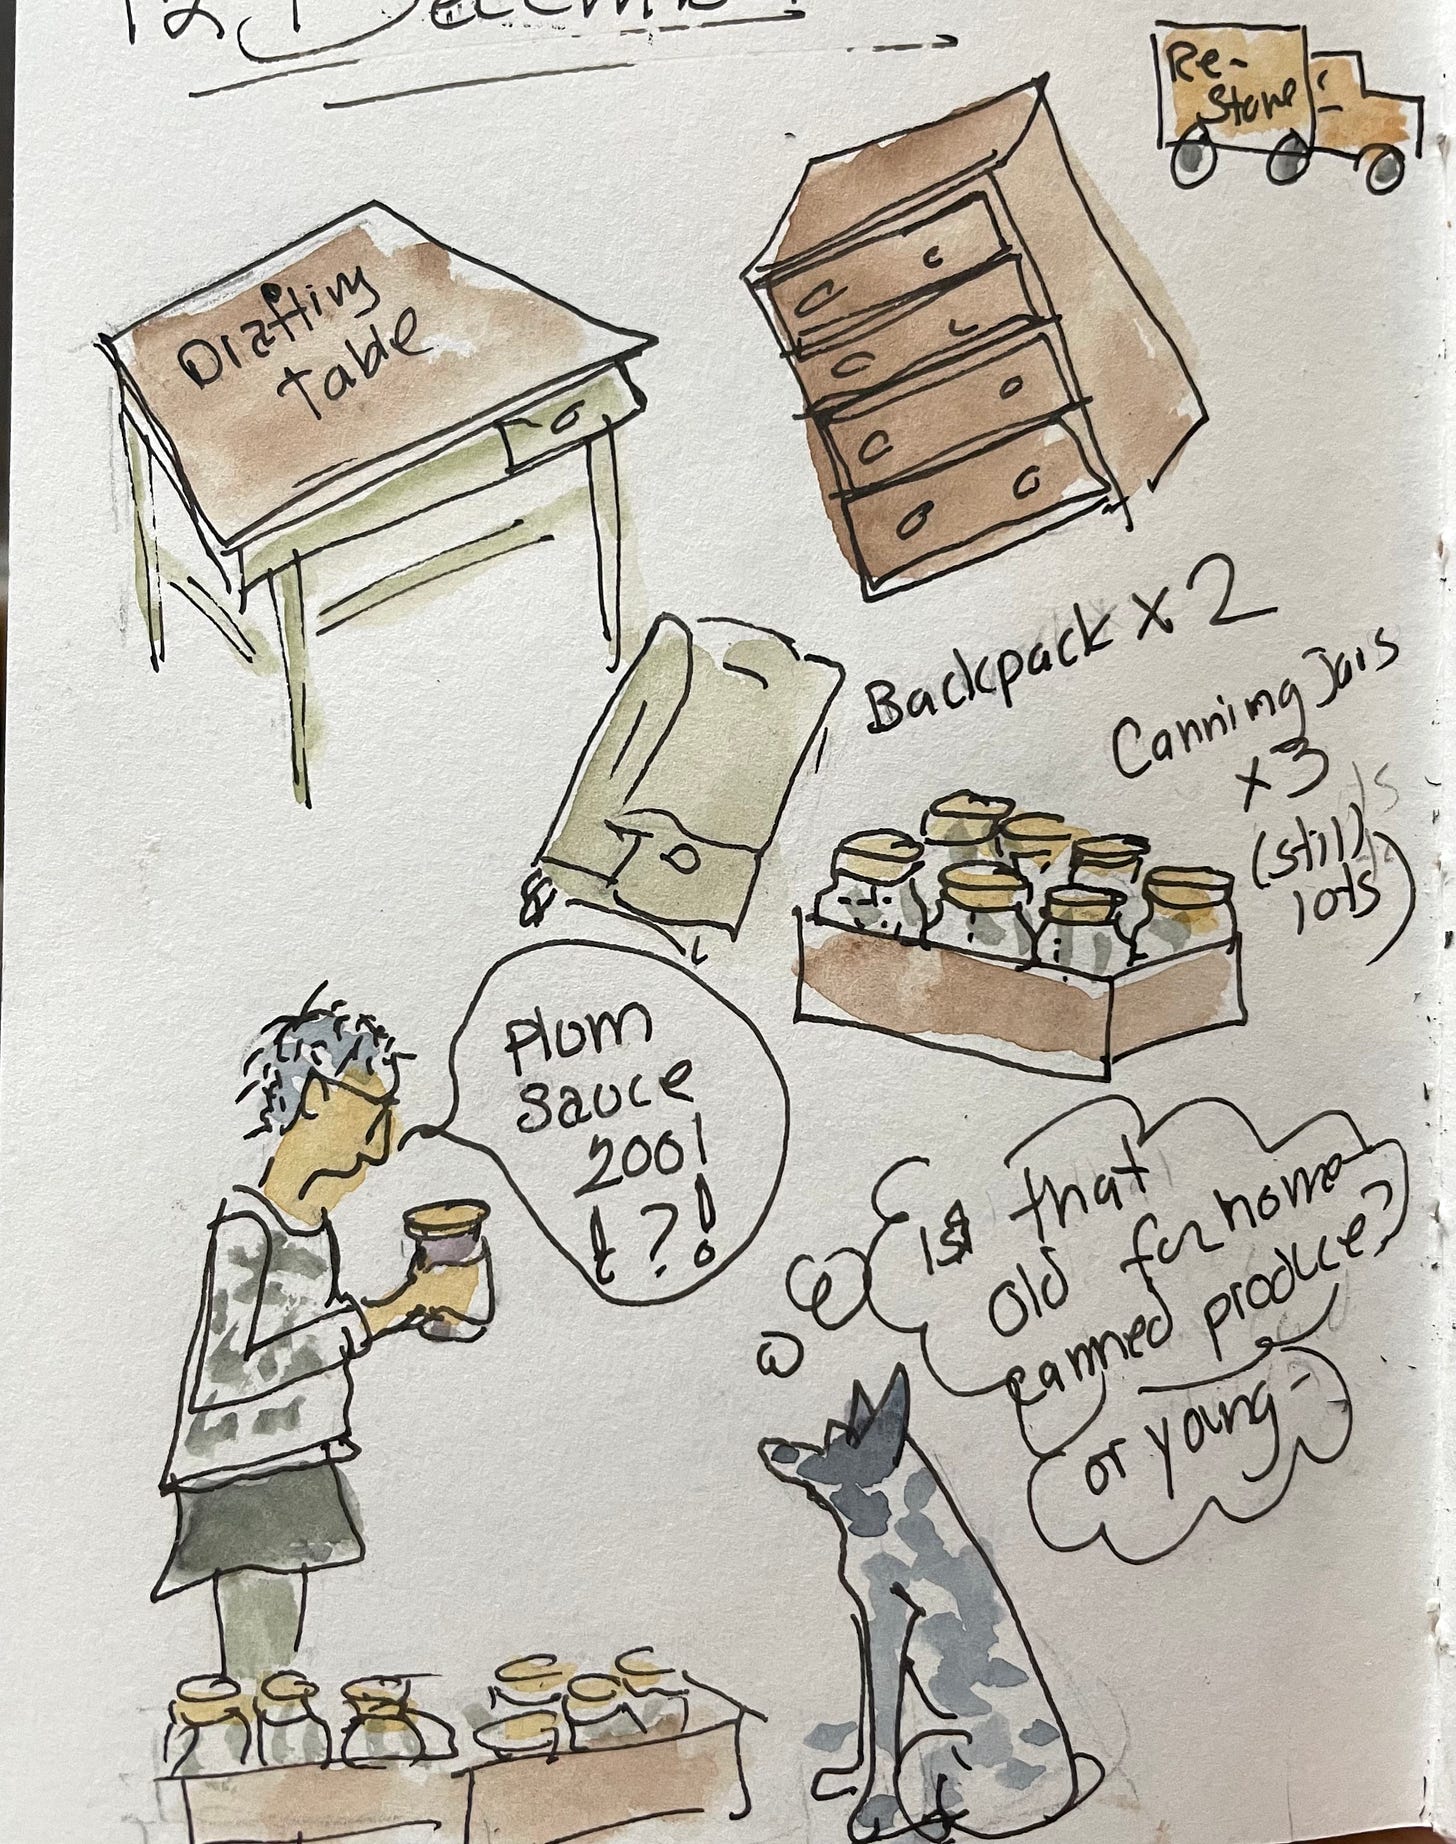 12 December
Re-
Store
Drafting
Table
Backpack x 2
Canning Jars
x 3
(still)
lots)
Plum
Sauce
2001
!?!
Is that
old for home
canned produce?
or young-